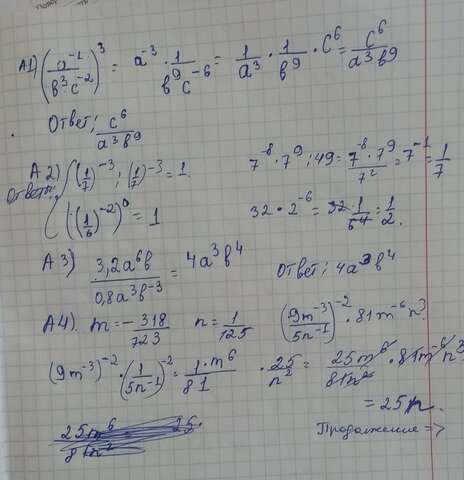 А1) (a⁻¹ / b³·c⁻²)³ = a⁻³ · 1 / b⁹c⁻⁶ = 1/a³ · 1/b⁹ · c⁶ = c⁶ / a³b⁹
Ответ: c⁶ / a³b⁹
А2) (1/7)⁻³ : (1/7)⁻³ = 1. 7⁻⁸·7⁹ : 49 = 7⁻⁸·7⁹ / 7² = 7⁻¹ = 1/7
Ответы:
((1/6)⁻²)⁰ = 1 32·2⁻⁶ = 32·1/64 = 1/2.
А3) 3,2a⁶b / 0,8a³b⁻³ = 4a³b⁴ Ответ: 4a³b⁴
А4). m = - 318/723 n = 1/125 (9m⁻³ / 5n⁻¹)⁻² · 81m⁻⁶n³
(9m⁻³)⁻² · (1/5n⁻¹)⁻² = 1·m⁶ / 81 · 25/n² = 25m⁶ / 81n² · 81m⁻⁶n³
= 25n.
Продолжение =>